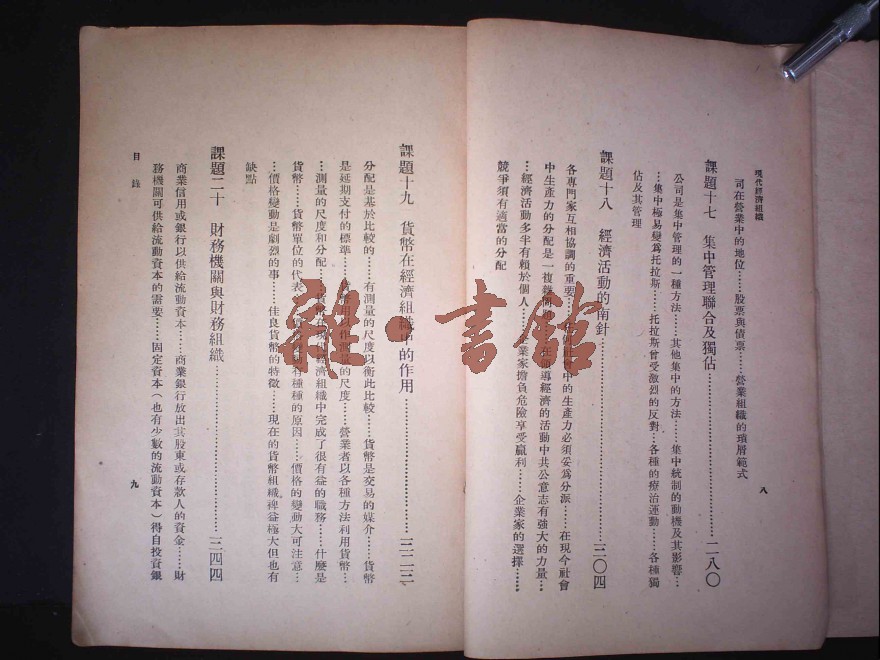 現代經濟組織
八
司在營業中的地位……股票與債票……營業組織的瑣屑範式
課題十七　集中管理聯合及獨佔……二八〇
公司是集中管理的一種方法……其他集中的方法……集中統制的動機及其影響…
…集中極易變爲托拉斯……托拉斯曾受激烈的反對…各種的療治運動……各種獨
佔及其管理
課題十八　經濟活動的南針……三〇四
各專門家互相協調的重要……中的生產力必須妥爲分派……在現今社會
中生產力的分配是一複雜……領導經濟的活動中共公意志有強大的力量…
…經濟活動多半有賴於個人……企業家擔負危險享受贏利……企業家的選擇……
競爭須有適當的分配
課題十九　貨幣在經濟組織中的作用……三二三
分配是基於比較的……有測量的尺度以衡此比較……貨幣是交易的媒介……貨幣
是延期支付的標準……量的尺度……營業者以各種方法利用貨幣…
…測量的尺度和分配……經濟組織中完成了很有益的職務……什麼是
貨幣……貨幣單位的代表……有種種的原因……價格的變動大可注意…
…價格變動是劇烈的事……佳良貨幣的特徵……現在的貨幣組織裨益極大但也有
缺點
課題二十　財務機關與財務組織……三四四
商業信用或銀行以供給流動資本……商業銀行放出其股東或存款人的資金……財
務機關可供給流動資本的需要……固定資本（也有少數的流動資本）得自投資銀
目錄
九
雜·書館